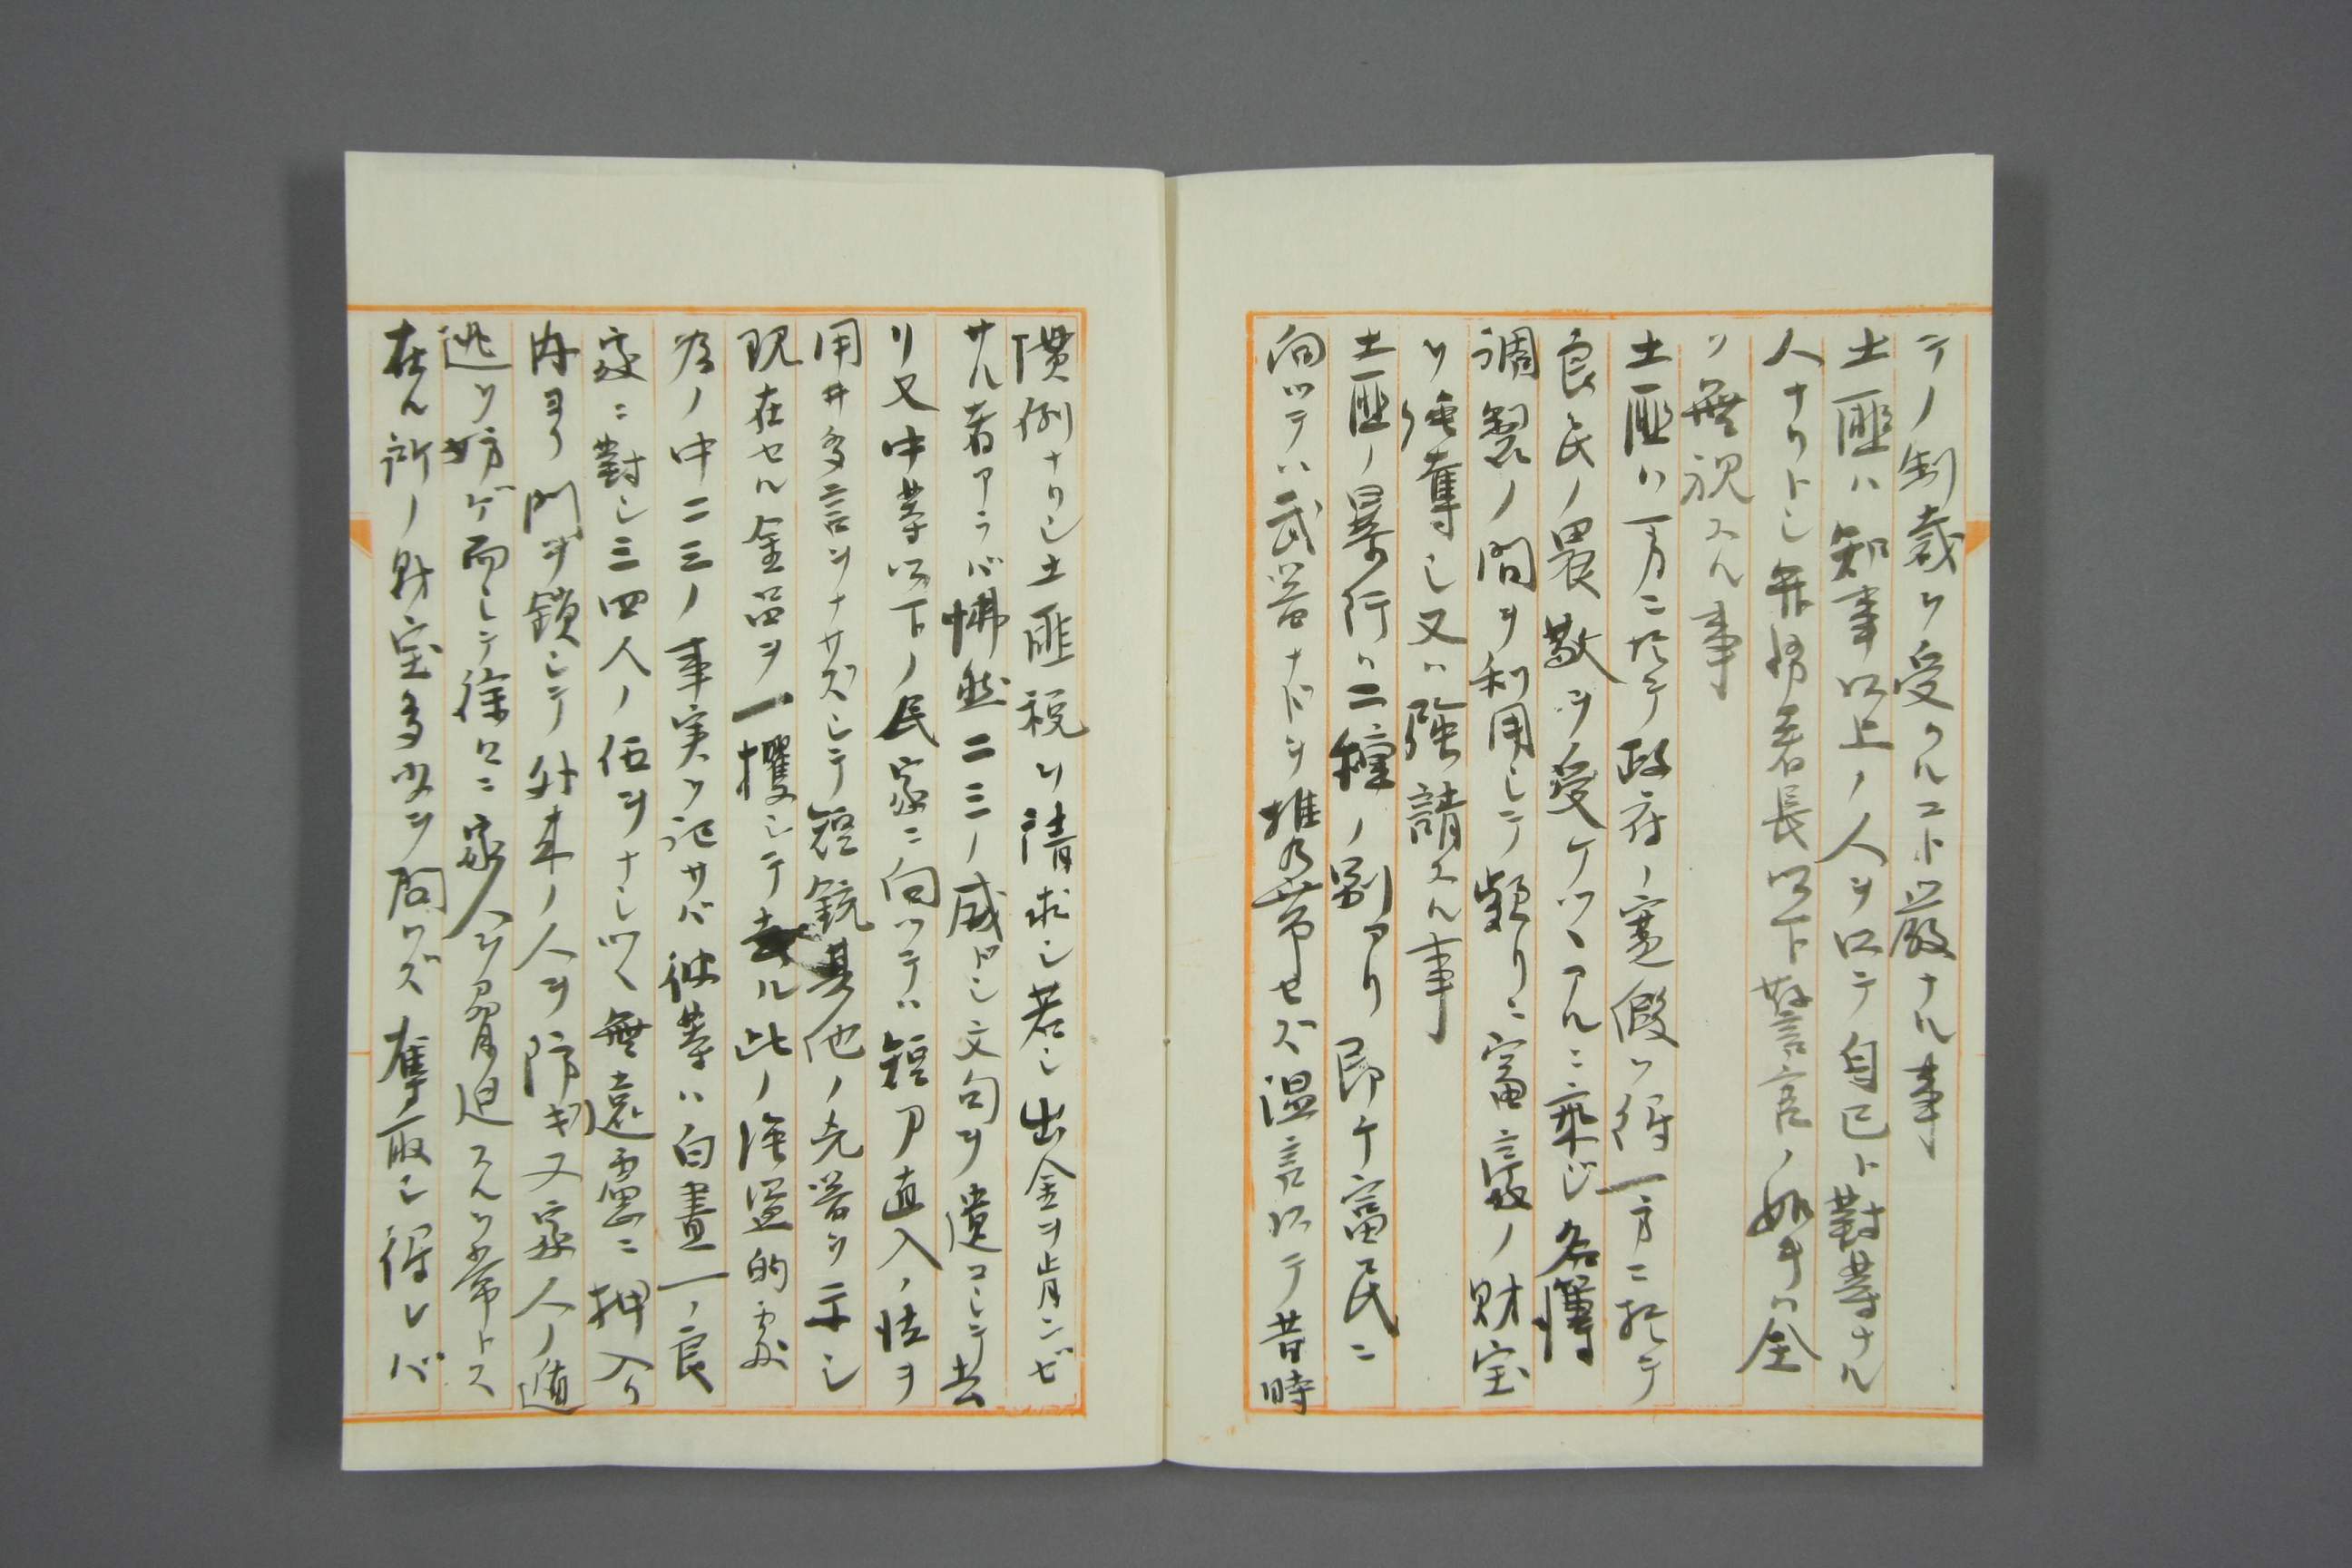 テノ制裁ヲ受クルコト厳ナル事
土匪ハ知事以上ノ人ヲ以テ自己ト對等ナル
人ナリトシ弁務署長以下警官ノ如キハ全
ク無視スル事
土匪ハ一方ニ於テ政府ノ寛假ヲ得一方ニ於テ
良民ノ畏敬ヲ受ケツヽアルニ乗ジ名簿
調製ノ間ヲ利用シテ頻リニ富豪ノ財宝
ヲ強奪シ又ハ強請スル事
土匪ノ暴行ハ二種ノ別アリ即ケ富民ニ
向ツテハ武器ナドヲ携帯セズ温言以テ昔時
慣例ナリシ土匪税ヲ請求シ若シ出金ヲ肯ンゼ
サル者アラバ怫然二三ノ威ドシ文句ヲ遺コシテ去
リ又中等以下ノ民家ニ向ツテハ短刀直入ノ法ヲ
用井多言ヲナサズシテ短銃其他ノ兇器ヲ示シ
現在セル金品ヲ一攫シテ去ル此ノ強盗的
ノ中二三ノ事実ヲ記サバ彼等ハ白晝一ノ良
家ニ對シ三四人ノ伍ヲナシツヽ無遠慮ニ押入リ
内ヨリ門ヲ鎖シテ外来ノ人ヲ防ギ又家人ノ遁
逃ヲ妨ゲ而シテ徐ロニ家人ヲ脅迫スルヲ常トス
在ル所ノ財宝多少ヲ問ハズ奪取シ得レバ